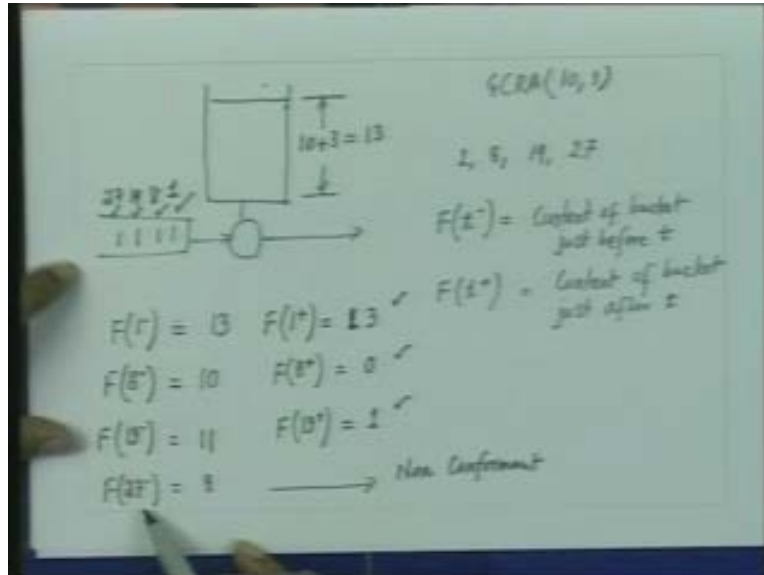 GCRA(10, 3)
10+3 = 13
1, 8, 19, 27
27 19 8 1
F(t⁻) = Content of bucket
just before t
F(t⁺) = Content of bucket
just after t
F(1⁻) = 13 F(1⁺) = 3 ✓
F(8⁻) = 10 F(8⁺) = 0 ✓
F(19⁻) = 11 F(19⁺) = 1 ✓
F(27⁻) = 9 → Non Conformant